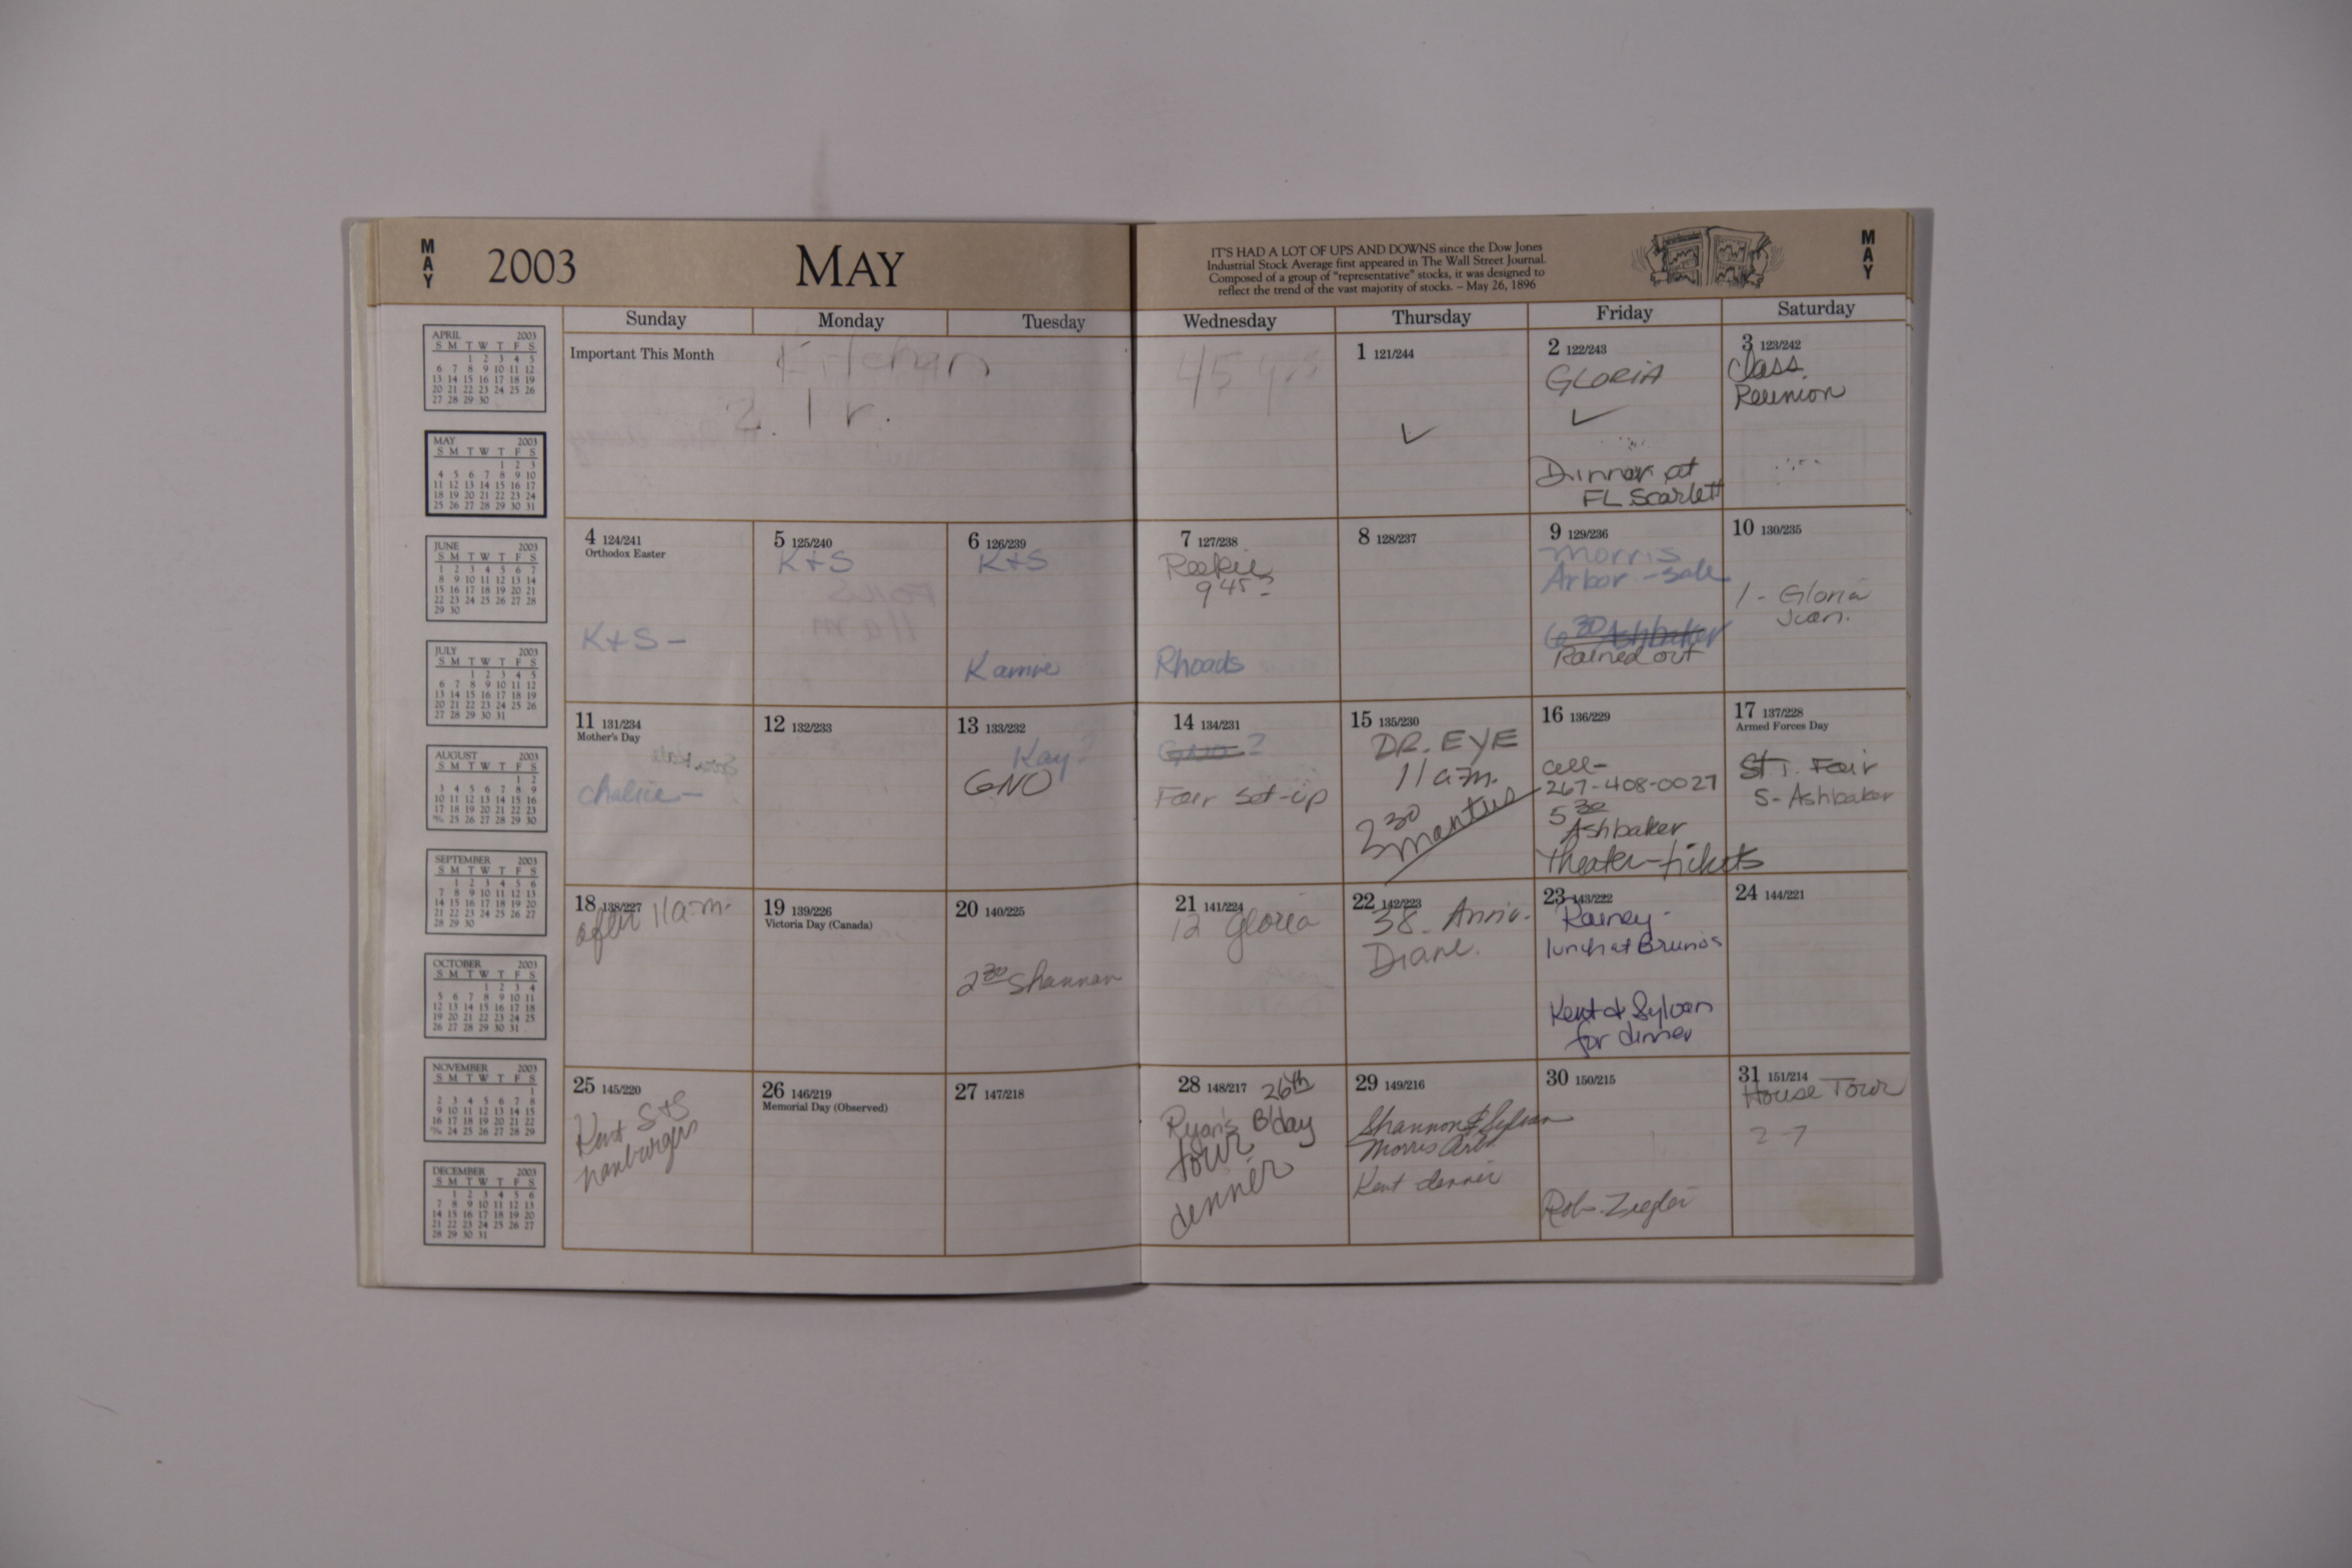 MAY
2003
MAY
IT'S HAD A LOT OF UPS AND DOWNS since the Dow Jones
Industrial Stock Average first appeared in The Wall Street Journal.
Composed of a group of "representative" stocks, it was designed to
reflect the trend of the vast majority of stocks. – May 26, 1896
MAY
Sunday Monday Tuesday Wednesday Thursday Friday Saturday
Important This Month
Kitchen
45 yds
2. 1 r.
1 121/244
✓
2 122/243
GLORIA
✓
Dinner at
FL Scarlett
3 123/242
Class
Reunion
4 124/241
Orthodox Easter
K+S –
5 125/240
K+S
6 126/239
K+S
Kamie
7 127/238
9 45
Rhoads
8 128/237
9 129/236
Morris
Arbor – sale
6 30 Ashbaker
Rained out
10 130/235
1 - Gloria
Jean.
11 131/234
Mother's Day
chalice –
12 132/233
13 133/232
Kay?
GNO
14 134/231
GNO ?
Fair set-up
15 135/230
DR. EYE
11 a.m.
2 30
16 136/229
cell-
267-408-0027
5 30
Ashbaker
Theater-tickets
17 137/228
Armed Forces Day
St T. Fair
S- Ashbaker
18 138/227
after 11 a.m.
19 139/226
Victoria Day (Canada)
20 140/225
2 30 Shannan
21 141/224
12 Gloria
22 142/223
38. Anniv.
Diane.
23 143/222
Rainey -
lunch at Brunos
Kent & Sylvan
for dinner
24 144/221
25 145/220
Kent S+S
hamburgers
26 146/219
Memorial Day (Observed)
27 147/218
28 148/217 26th
Ryan's B'day
tour
dinner
29 149/216
Shannon & Sylvan
Morris Arb.
Kent dinner
30 150/215
Rob. Ziegler
31 151/214
House Tour
2-7
APRIL 2003
S M T W T F S
1 2 3 4 5
6 7 8 9 10 11 12
13 14 15 16 17 18 19
20 21 22 23 24 25 26
27 28 29 30
MAY 2003
S M T W T F S
1 2 3
4 5 6 7 8 9 10
11 12 13 14 15 16 17
18 19 20 21 22 23 24
25 26 27 28 29 30 31
JUNE 2003
S M T W T F S
1 2 3 4 5 6 7
8 9 10 11 12 13 14
15 16 17 18 19 20 21
22 23 24 25 26 27 28
29 30
JULY 2003
S M T W T F S
1 2 3 4 5
6 7 8 9 10 11 12
13 14 15 16 17 18 19
20 21 22 23 24 25 26
27 28 29 30 31
AUGUST 2003
S M T W T F S
1 2
3 4 5 6 7 8 9
10 11 12 13 14 15 16
17 18 19 20 21 22 23
24/31 25 26 27 28 29 30
SEPTEMBER 2003
S M T W T F S
1 2 3 4 5 6
7 8 9 10 11 12 13
14 15 16 17 18 19 20
21 22 23 24 25 26 27
28 29 30
OCTOBER 2003
S M T W T F S
1 2 3 4
5 6 7 8 9 10 11
12 13 14 15 16 17 18
19 20 21 22 23 24 25
26 27 28 29 30 31
NOVEMBER 2003
S M T W T F S
1
2 3 4 5 6 7 8
9 10 11 12 13 14 15
16 17 18 19 20 21 22
23/30 24 25 26 27 28 29
DECEMBER 2003
S M T W T F S
1 2 3 4 5 6
7 8 9 10 11 12 13
14 15 16 17 18 19 20
21 22 23 24 25 26 27
28 29 30 31